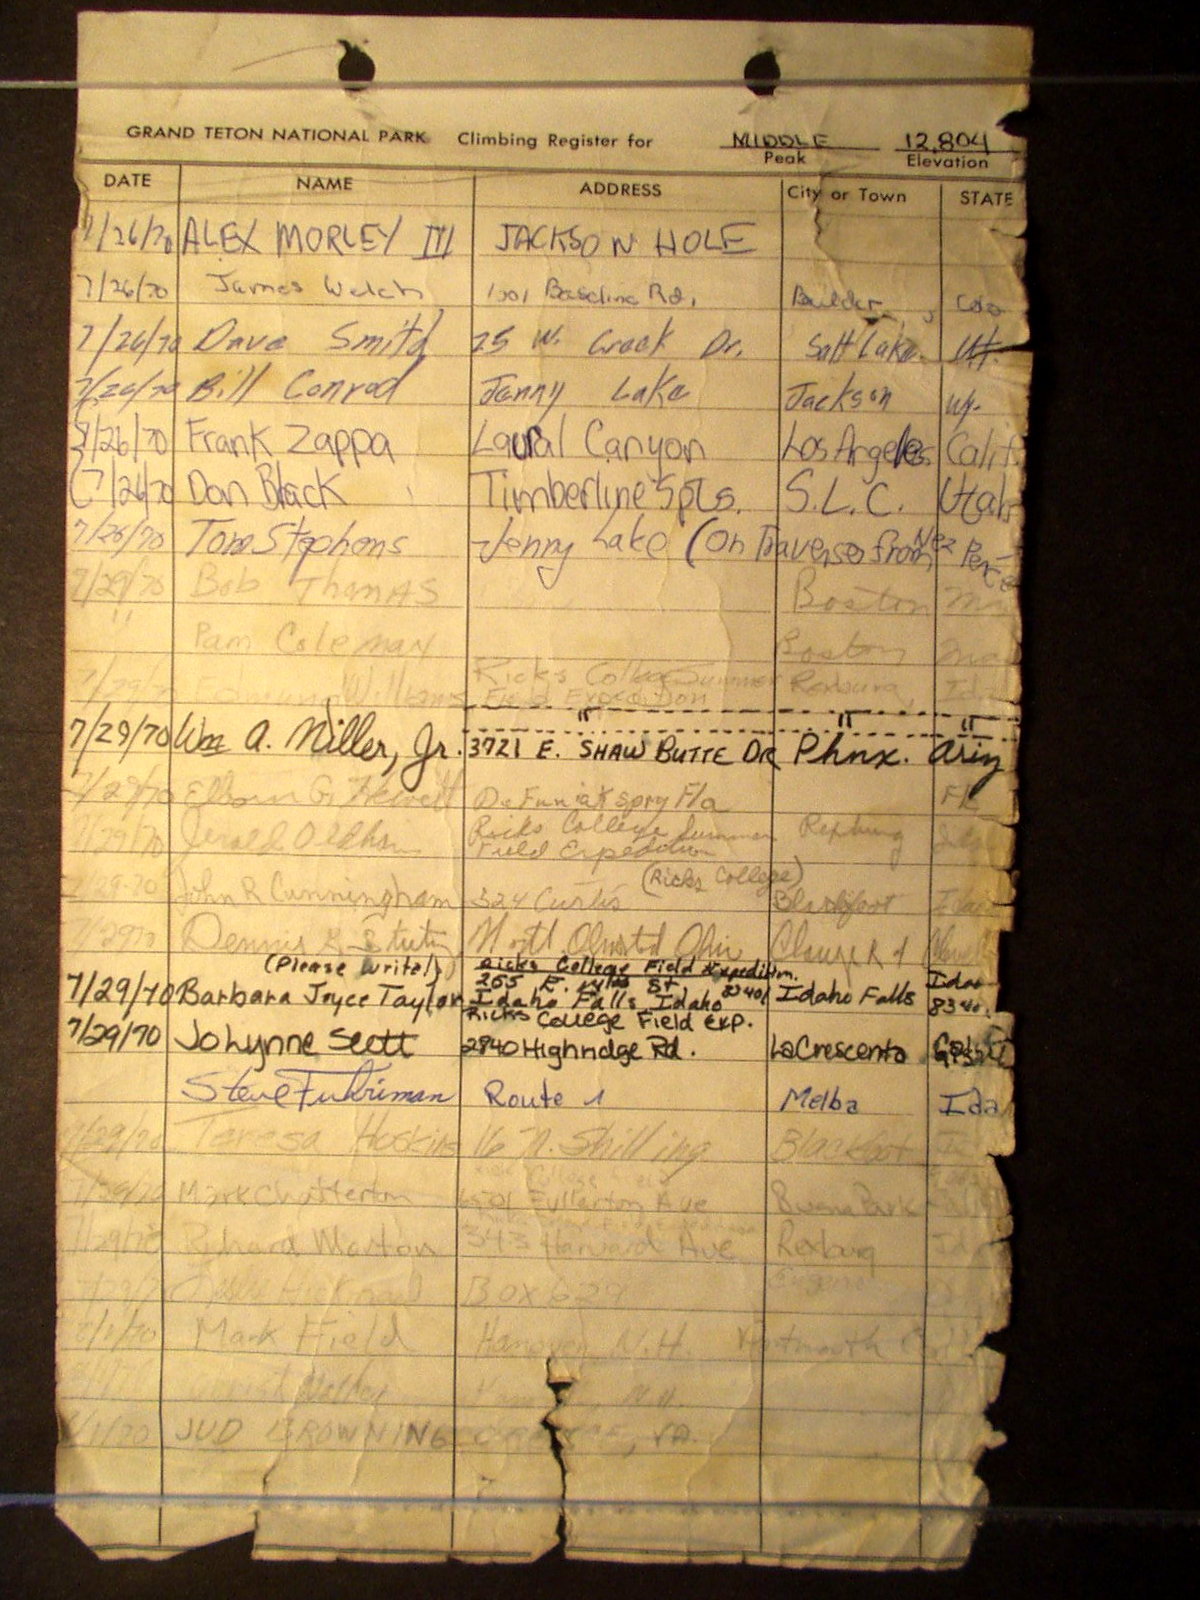 GRAND TETON NATIONAL PARK Climbing Register for MIDDLE 12,804
Peak Elevation
DATE NAME ADDRESS City or Town STATE
7/26/70 ALEX MORLEY III JACKSON HOLE
7/26/70 James Welch 1301 Baseline Rd, Boulder, Colo
7/26/70 Dave Smith 25 W. Crook Dr. Salt Lake Ut.
7/26/70 Bill Conrod Jenny Lake Jackson Wy.
7/26/70 Frank Zappa Laural Canyon Los Angeles Calif
7/26/70 Don Black Timberline Spts. S.L.C. Utah
7/26/70 Tom Stephens Jenny Lake (on Traverse from Nez Perce
7/29/70 Bob Thomas Boston Ma
" Pam Coleman Boston Ma
Ricks College Summer Rexburg, Ida
7/29/70 Edmund Williams Field Expedition
" " "
7/29/70 Wm A. Miller, Jr. 3721 E. SHAW BUTTE DR Phnx. Ariz
7/29/70 G. Hewett De Funiak Spry Fla
7/29/70 Jerald Oldham Ricks College Summer Rexburg
Field Expedition
(Ricks College)
7/29/70 John R Cunningham 324 Curtis Blackfoot Idaho
7/29/70 Dennis North Olmsted Ohio
(Please write!) Ricks College Field Expedition.
255 E. St Idaho
7/29/70 Barbara Joyce Taylor Idaho Falls, Idaho 83401 Idaho Falls 8340
Ricks College Field Exp.
7/29/70 JoLynne Scott 2840 Highridge Rd. LaCrescenta Calif
Steve Fuhriman Route 1 Melba Ida
7/29/70 Teresa Hoskins 16 N. Shilling Blackfoot
College
7/29/70 Mark Chatterton Fullerton Ave Buena Park
7/29/70 Richard Morton 343 Harvard Ave Rexburg Ida
7/29/70 Box 629 Eugene
8/1/70 Mark Field Hanover N.H. Dartmouth
N.H.
8/1/70 JUD BROWNING VA.